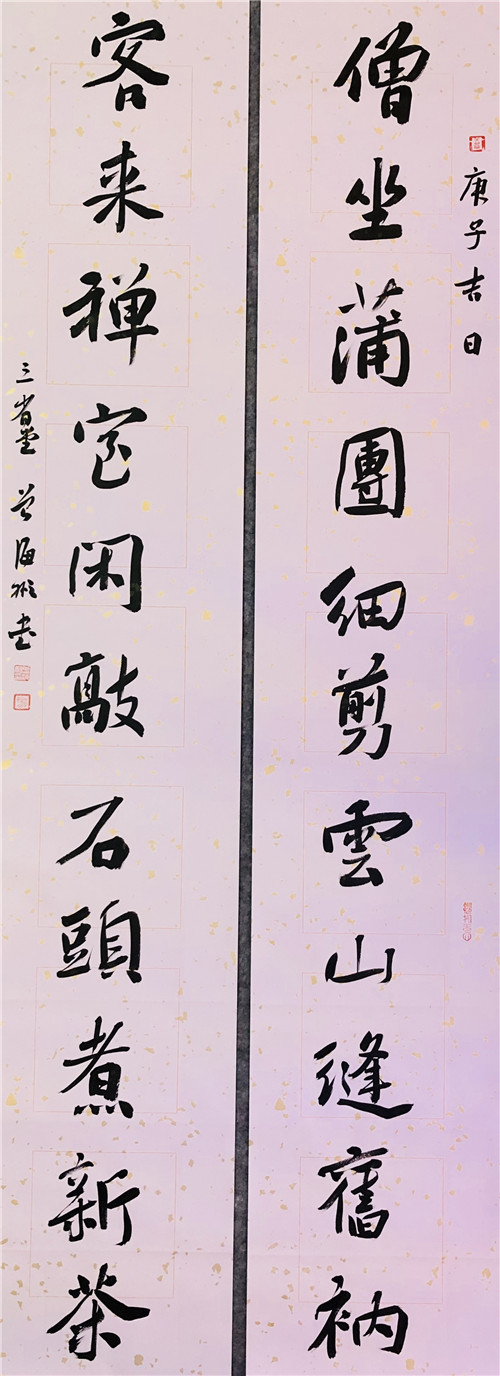 庚子吉日
僧坐蒲團細剪雲山縫舊衲
客来禅室闲敲石頭煮新茶
三省堂